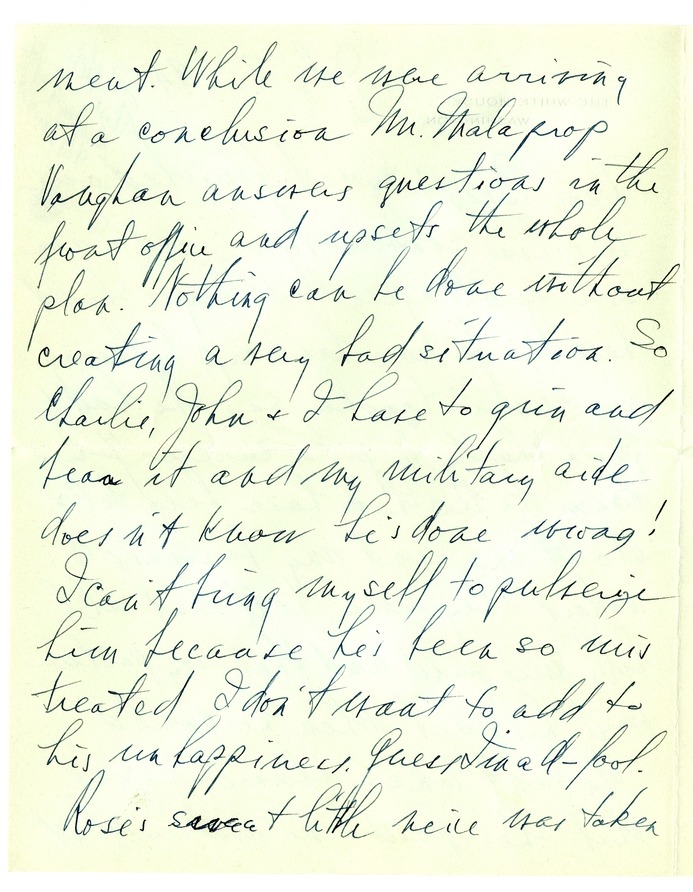 ment. While we were arriving
at a conclusion Mr. Malaprop
Vaughan answers questions in the
front office and upsets the whole
plan. Nothing can be done without
creating a very bad situation. So
Charlie, John & I have to grin and
bear it and my military aide
doesn't know he's done wrong!
I can't bring myself to pulverize
him because he's been so mis
treated I don't want to add to
his unhappiness. Guess I'm a d- fool.
Rose's sweet little neice was taken